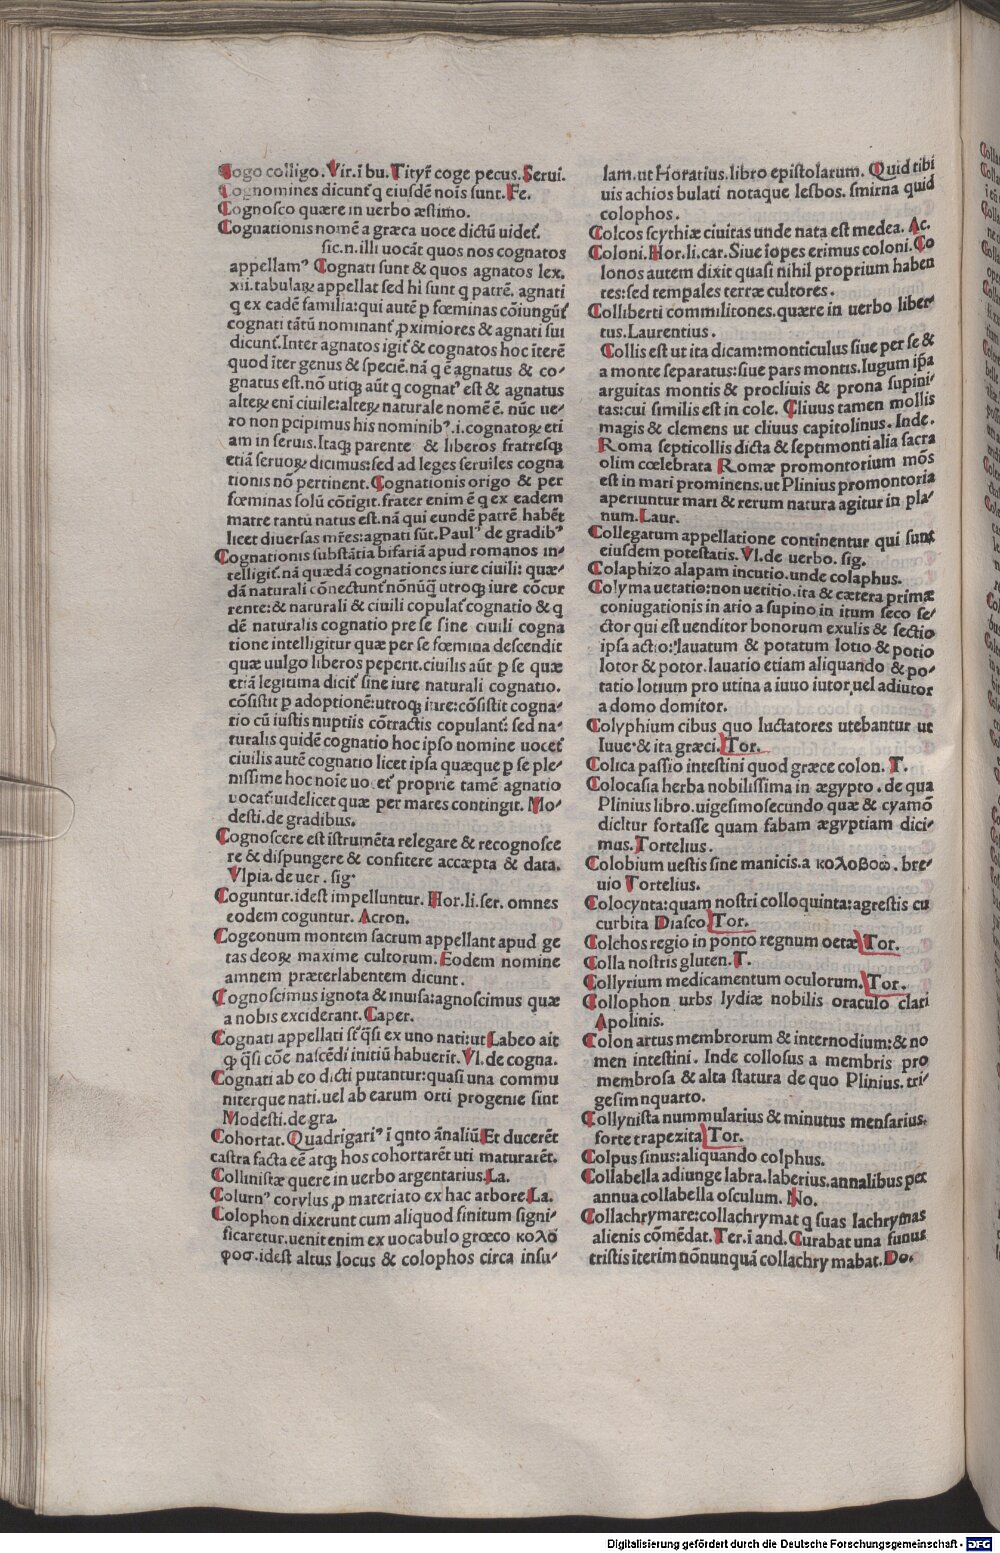 Cogo colligo. Vir. ī bu. Tityr̄ coge pecus. Serui.
Cognomines dicunt᷑ q eiusdē nois sunt. Fe.
Cognosco quære in uerbo æstimo.
Cognationis nomē a græca uoce dictū uidet᷑.
sic. n. illi uocāt quos nos cognatos
appellamꝰ Cognati sunt & quos agnatos lex.
xii. tabulaꝝ appellat sed hi sunt q patrē. agnati
q ex eadē familia: qui autē p fœminas cōiungūt᷑
cognati tātū nominant᷑, p̱ximiores & agnati sui
dicunt᷑. Inter agnatos igit᷑ & cognatos hoc īterē
quod īter genus & speciē. nā q ē agnatus & co⸗
gnatus est. nō utiqꝫ aūt q cognatꝰ est & agnatus
alteꝝ eni ciuile: alteꝝ naturale nomē ē. nūc ue⸗
ro non pcipimus his nominibꝰ .i. cognatoꝝ eti
am in seruis. Itaqꝫ parente & liberos fratresqꝫ
etiā seruoꝝ dicimus: sed ad leges seruiles cogna
tionis nō pertinent. Cognationis origo & per
fœminas solū cōtigit. frater enim ē q ex eadem
matre tantū natus est. nā qui eundē patrē habēt
licet diuersas mr̄es: agnati sūt. Paulꝰ de gradibꝰ
Cognationis substātia bifariā apud romanos in⸗
telligit᷑. nā quædā cognationes iure ciuili: quæ⸗
dā naturali cōnectunt᷑ nōnūq̄ utroqꝫ iure cōcur
rente: & naturali & ciuili copulat᷑ cognatio & q
dē naturalis cognatio per se sine ciuili cogna
tione intelligitur quæ per se fœmina descendit
quæ uulgo liberos peperit. ciuilis aūt p se quæ
etiā legitima dicit᷑ sine iure naturali cognatio.
cōsistit p adoptionē: utroqꝫ iure: cōsistit cogna⸗
tio cū iustis nuptiis cōtractis copulant᷑: sed na⸗
turalis quidē cognatio hoc ipso nomine uocet᷑
ciuilis autē cognatio licet ipsa quæque p se ple⸗
nissime hoc noie uocet᷑ proprie tamē agnatio
uocat᷑: uidelicet quæ per mares contingit. Mo⸗
desti. de gradibus.
Cognoscere est īstrumēta relegare & recognosce
re & dispungere & confitere accæpta & data.
Vlpia. de uer. sig.
Coguntur. idest impelluntur. Hor. li. ser. omnes
eodem coguntur. Acron.
Cogeonum montem sacrum appellant apud ge
tas deoꝝ maxime cultorum. Eodem nomine
amnem præterlabentem dicunt.
Cognoscimus ignota & inuisa: agnoscimus quæ
a nobis exciderant. Caper.
Cognati appellati sūt q̄si ex uno nati: ut Labeo ait
qꝫ q̄si cōe nascēdi initiū habuerit. Vl. de cogna.
Cognati ab eo dicti putantur: quasi una commu
niterque nati. uel ab earum orti progenie sint
Modesti. de gra.
Cohortat. Quadrigariꝰ ī qnto ānaliū Et ducerēt
castra facta eē atqꝫ hos cohortarēt uti maturarēt.
Collinistæ quere in uerbo argentarius. La.
Colurnꝰ corylus, p̱ materiato ex hac arbore. La.
Colophon dixerunt cum aliquod finitum signi⸗
ficaretur. uenit enim ex uocabulo grœco κολο
φοσ. idest altus locus & colophos circa insu⸗
lam. ut Horatius. libro epistolarum. Quid tibi
uis achios bulati notaque lesbos. smirna quid
colophos.
Colcos scythiæ ciuitas unde nata est medea. Ac.
Coloni. Hor. li. car. Siue īopes erimus coloni. Co
lonos autem dixit quasi nihil proprium haben
tes: sed tempales terræ cultores.
Colliberti commilitones. quære in uerbo liber⸗
tus. Laurentius.
Collis est ut ita dicam: monticulus siue per se &
a monte separatus: siue pars montis. Iugum ip̄a
arguitas montis & procliuis & prona supini⸗
tas: cui similis est in cole. Cliuus tamen mollis
magis & clemens ut cliuus capitolinus. Inde.
Roma septicollis dicta & septimontialia sacra
olim cœlebrata Romæ promontorium mōs
est in mari prominens. ut Plinius promontoria
aperiuntur mari & rerum natura agitur in pla⸗
num. Laur.
Collegatum appellatione continentur qui sunt
eiusdem potestatis. Vl. de uerbo. sig.
Colaphizo alapam incutio. unde colaphus.
Colyma uetatio: non uetitio. ita & cætera primæ
coniugationis in atio a supino in itum seco se⸗
ctor qui est uenditor bonorum exulis & sectio
ipsa actio: lauatum & potatum lotio & potio
lotor & potor. lauatio etiam aliquando & po⸗
tatio lotium pro utina a iuuo iutor, uel adiutor
a domo domitor.
Colyphium cibus quo luctatores utebantur ut
Iuue. & ita græci. Tor.
Colica passio intestini quod græce colon. T.
Colocasia herba nobilissima in ægypto. de qua
Plinius libro. uigesimosecundo quæ & cyamō
dicitur fortasse quam fabam ægyptiam dici⸗
mus. Tortelius.
Colobium uestis sine manicis. a κολοβοω. bre⸗
uio Tortelius.
Colocynta: quam nostri colloquinta: agrestis cu
curbita Diasco. Tor.
Colchos regio in ponto regnum oetæ Tor.
Colla nostris gluten. T.
Collyrium medicamentum oculorum. Tor.
Collophon urbs lydiæ nobilis oraculo clari
Apolinis.
Colon artus membrorum & internodium: & no
men intestini. Inde collosus a membris pro
membrosa & alta statura de quo Plinius. tri⸗
gesimnquarto.
Collynista nummularius & minutus mensarius.
forte trapezita Tor.
Colpus sinus: aliquando colphus.
Collabella adiunge labra. laberius. annalibus per
annua collabella osculum. No.
Collachrymare: collachrymat q suas lachrymas
alienis cōmēdat. Ter. ī and. Curabat una funus
tristis īterim nōnunquā collachrymabat. Do.
Digitalisierung gefördert durch die Deutsche Forschungsgemeinschaft - DFG